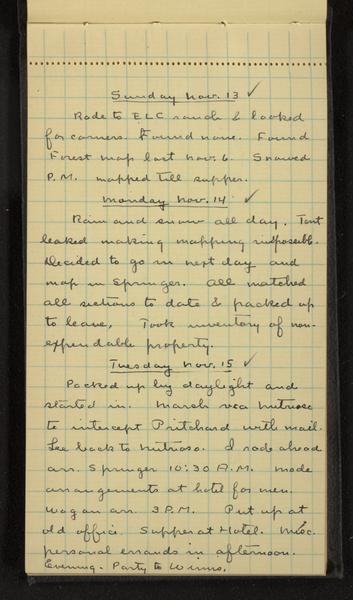 Sunday Nov. 13 ✓
Rode to ELC ranch & looked
for corners. Found none. Found
Forest map lost Nov. 6. Snowed
P.M. mapped till supper.
Monday Nov. 14 ✓
Rain and snow all day. Tent
leaked making mapping impossible.
Decided to go in next day and
map in Springer. All matched
all sections to date & packed up
to leave. Took inventory of non-
expendable property.
Tuesday Nov. 15 ✓
Packed up by daylight and
started in. March via Nutrioso
to intercept Pritchard with mail.
Lee back to Nutrioso. I rode ahead
arr. Springer 10:30 A.M. made
arrangements at hotel for men.
Wagon arr. 3 P.M. Put up at
old office. Supper at Hotel. Misc.
personal errands in afternoon.
Evening - Party to